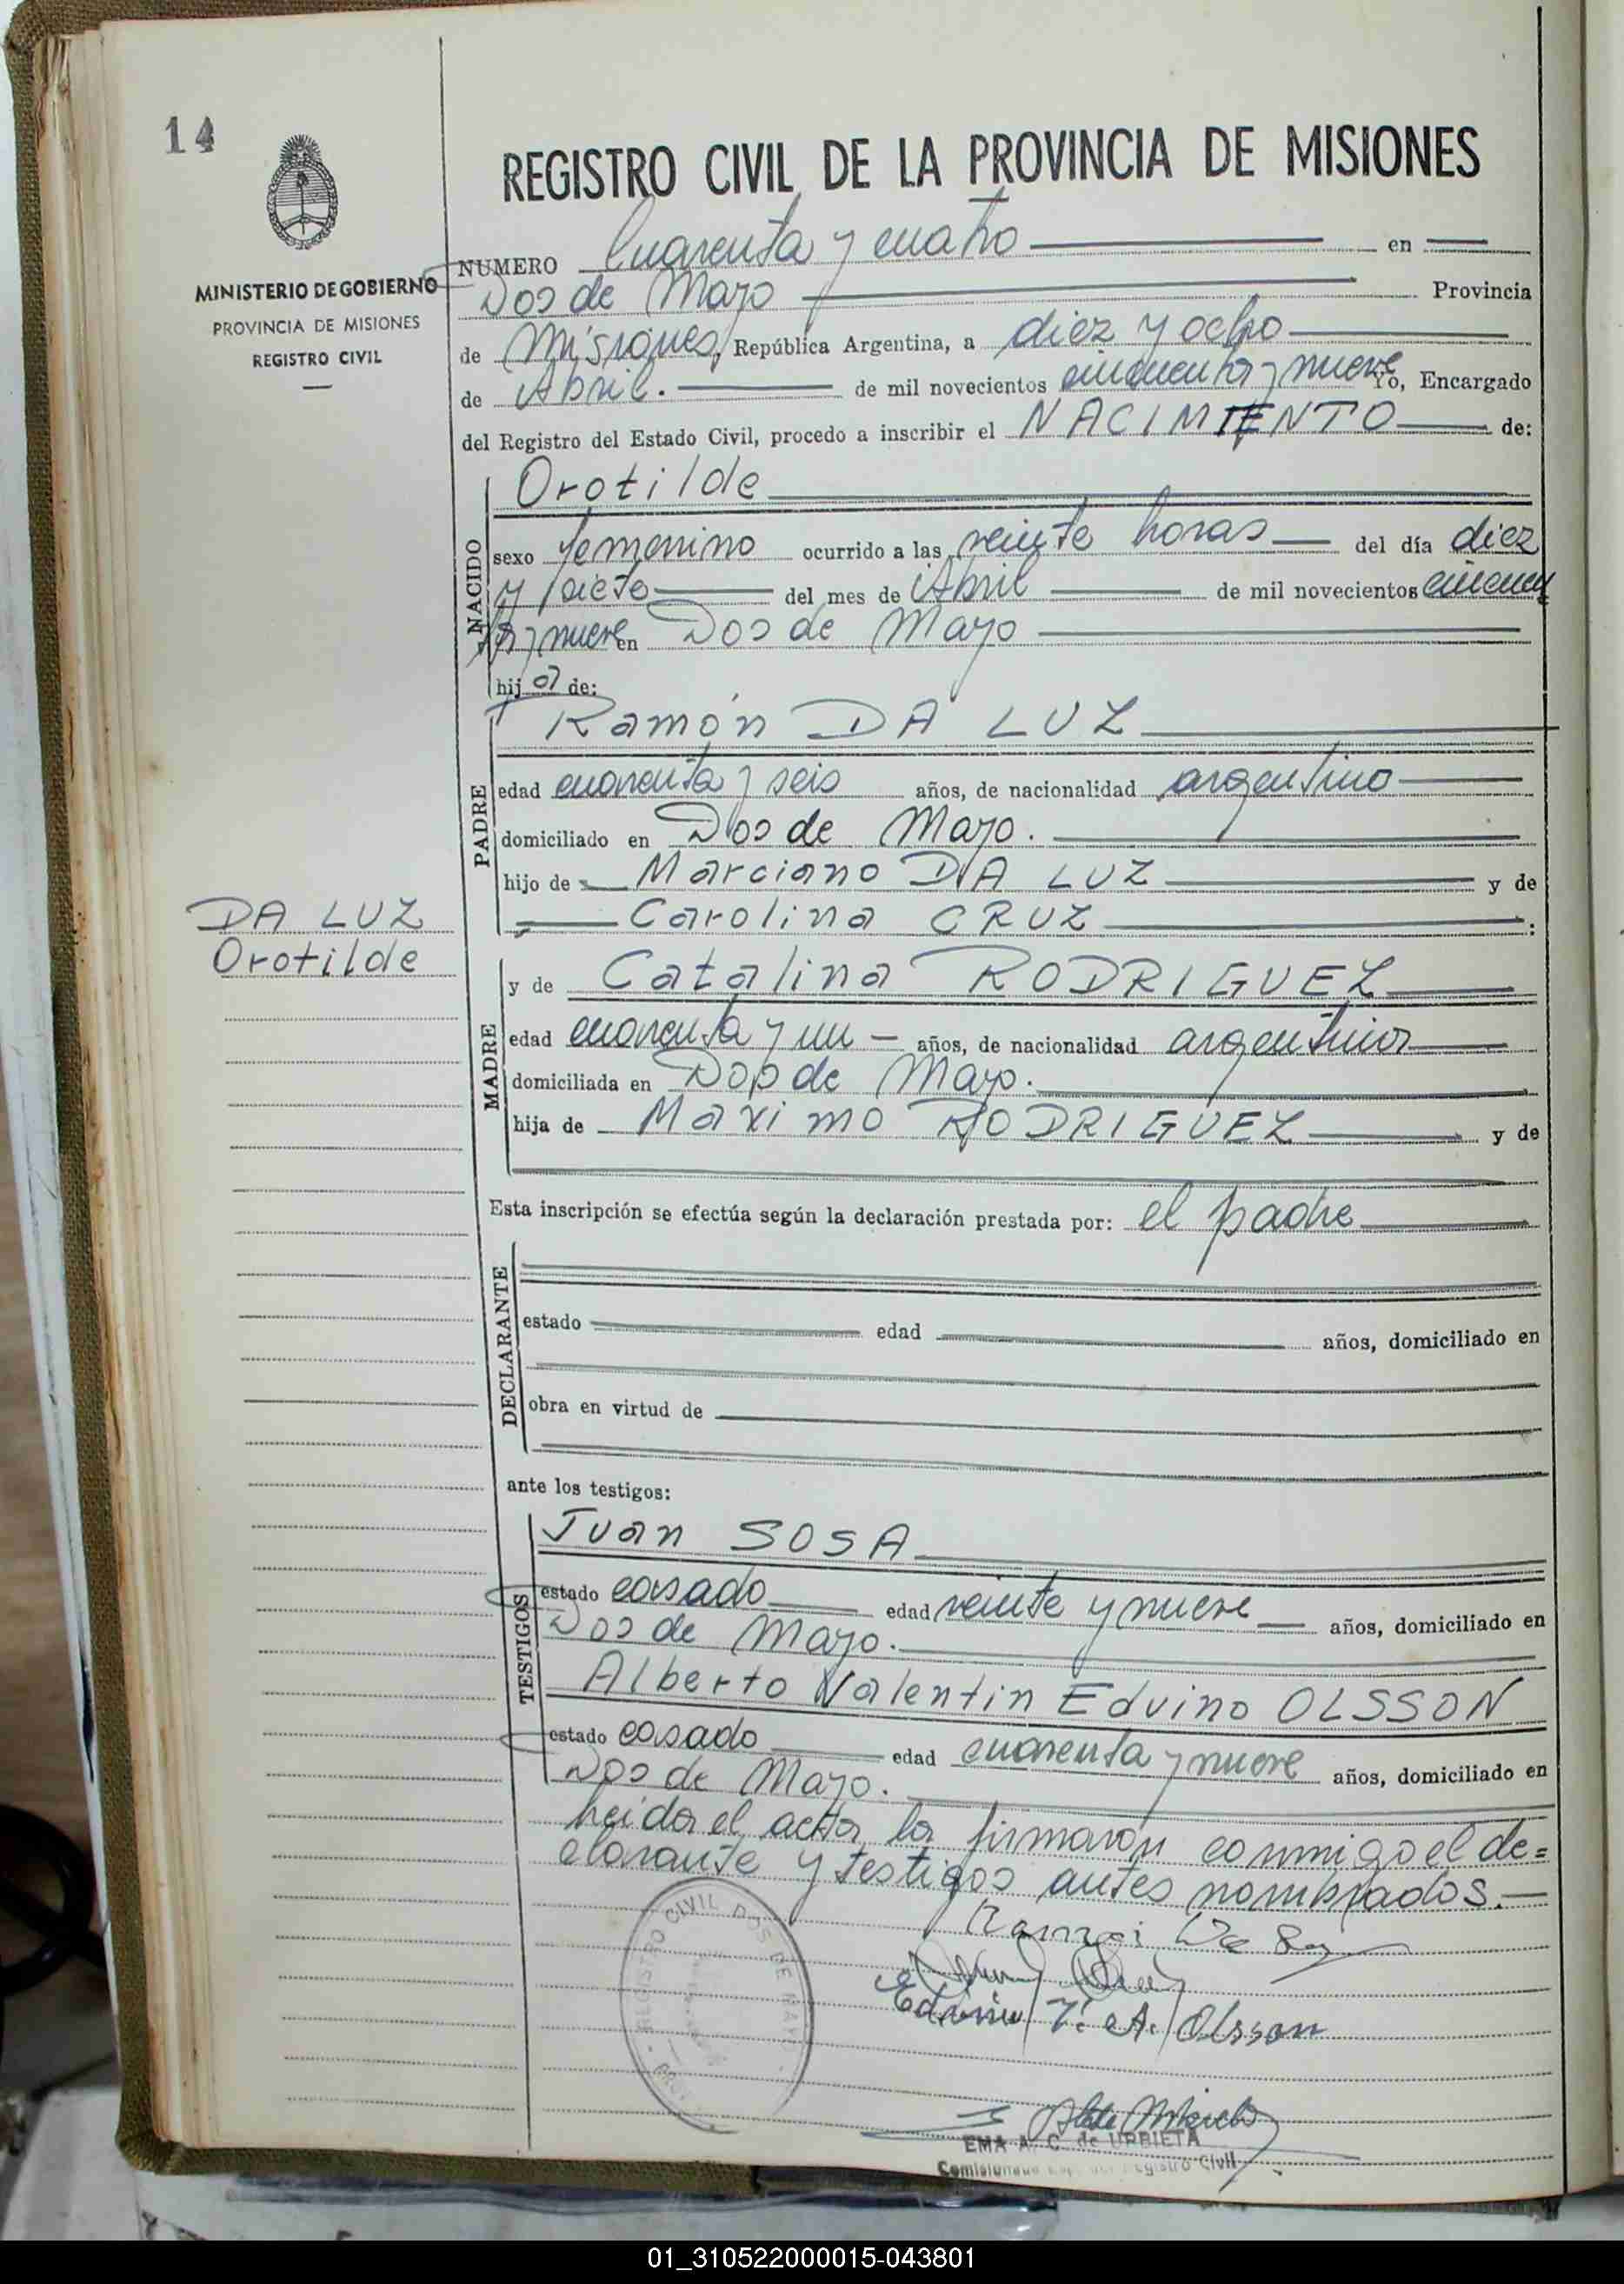 14
REGISTRO CIVIL DE LA PROVINCIA DE MISIONES
MINISTERIO DE GOBIERNO
PROVINCIA DE MISIONES
REGISTRO CIVIL
NUMERO Cuarenta y cuatro en
Dos de Mayo Provincia
de Misiones, República Argentina, a diez y ocho
de Abril. de mil novecientos cincuenta y nueve Yo, Encargado
del Registro del Estado Civil, procedo a inscribir el NACIMIENTO de:
NACIDO
Orotilde
sexo femenino ocurrido a las veinte horas del día diez
y siete del mes de Abril de mil novecientos cincuen
ta y nueve en Dos de Mayo
hij a de:
PADRE
Ramón DA LUZ
edad cuarenta y seis años, de nacionalidad argentino
domiciliado en Dos de Mayo.
hijo de Marciano DA LUZ y de
Carolina CRUZ :
DA LUZ
Orotilde
MADRE
y de Catalina RODRIGUEZ
edad cuarenta y un años, de nacionalidad argentina
domiciliada en Dos de Mayo.
hija de Maximo RODRIGUEZ y de
Esta inscripción se efectúa según la declaración prestada por: el padre
DECLARANTE
estado edad años, domiciliado en
obra en virtud de
ante los testigos:
TESTIGOS
Juan SOSA
estado casado edad veinte y nueve años, domiciliado en
Dos de Mayo.
Alberto Valentin Eduino OLSSON
estado casado edad cuarenta y nueve años, domiciliado en
Dos de Mayo.
Leida el acta, la firmaron conmigo el de=
clarante y testigos antes nombrados.
REGISTRO CIVIL DOS DE MAYO
V. A. Olsson
EMA A. C. de URBIETA
Registro Civil
01_310522000015-043801